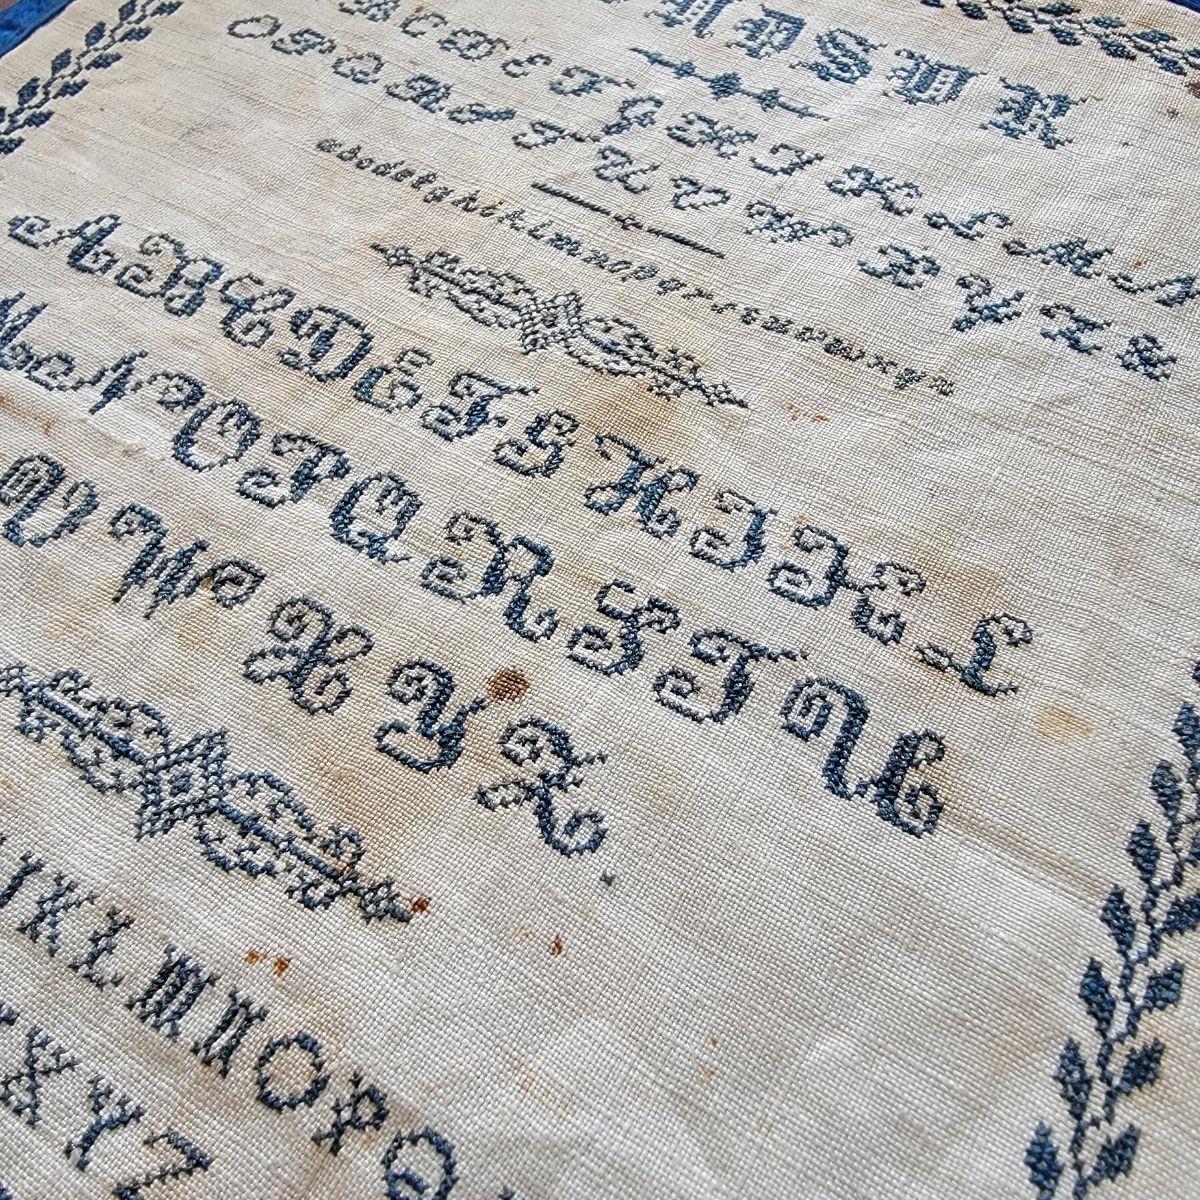 B C D E F G H I K L M N
O P Q R S T U V W X Y Z &
abcdefghiklmnopqrstuvwxyz
A B C D E F G H I K L
M N O P Q R S T U
V W X Y Z
I K L M N O P Q
X Y Z